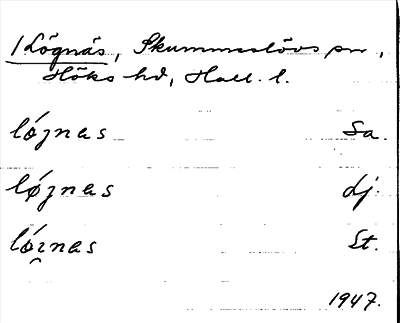 1 Lögnäs, Skummeslövs sn,
Höks hd, Hall. l.
lóʒnas Sa.
lǿʒnas Lj.
lóʒ̯nas St.
1947.